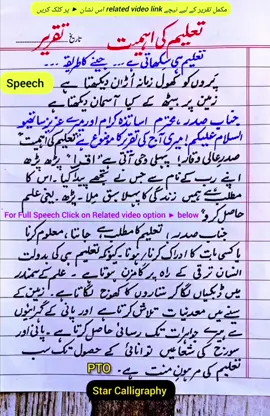 مکمل تقریر کے لیے نیچے related video link اس نشان ► پر کلک کریں
تعلیم کی اہمیت تقریر
تاریخ
تعلیم ہی سکھاتی ہے ... جینے کا طریقہ ...
Speech
پروں کو کھول زمانہ اُڑان دیکھتا ہے
زمین پر بیٹھ کے کیا آسمان دیکھتا ہے
جناب صدر، محترم اساتذہ کرام اور میرے عزیز ساتھیو
السلام علیکم! میری آج کی تقریر کا موضوع ہے تعلیم کی اہمیت"
صدرِ عالی وقار! پہلی وحی آتی ہے "اقرا" پڑھ پڑھ
اپنے رب کے نام سے جس نے تجھے پیدا کیا۔ اس کا
مطلب ہے ہمیں زندگی کا پہلا سبق ملا۔ پڑھ۔ یعنی علم
حاصل کرو"
For Full Speech Click on Related video option ► below
جناب صدر، تعلیم کا مطلب ہے جاننا، معلوم کرنا
یا کسی بات کا ادراک کرنا ہونا۔ کیونکہ تعلیم ہی کی بدولت
انسان ترقی کے راہ پر گامزن ہوتا ہے۔ علم کے سمندر
میں ڈبکیاں لگا کر ستاروں کا کھوج لگاتا ہے۔ زمین کے
سینے میں معدنیات تلاش کرتا ہے اور پانی کے گہرائیوں
سے ہیرے جواہرات تک رسائی حاصل کرتا ہے۔ پانی اور
سورج کی شعاعیں توانائی کے حصول تک سب
تعلیم کی مرہونِ منت ہے۔
PTO
Star Calligraphy